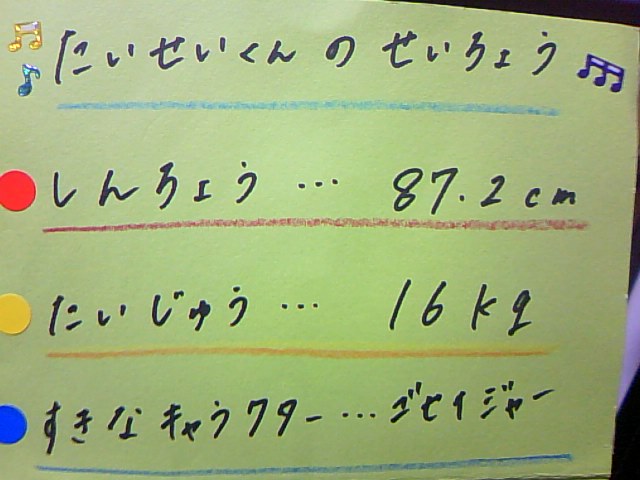 たいせいくんのせいちょう
しんちょう… 87.2cm
たいじゅう… 16kg
すきなキャラクター…ゴセイジャー